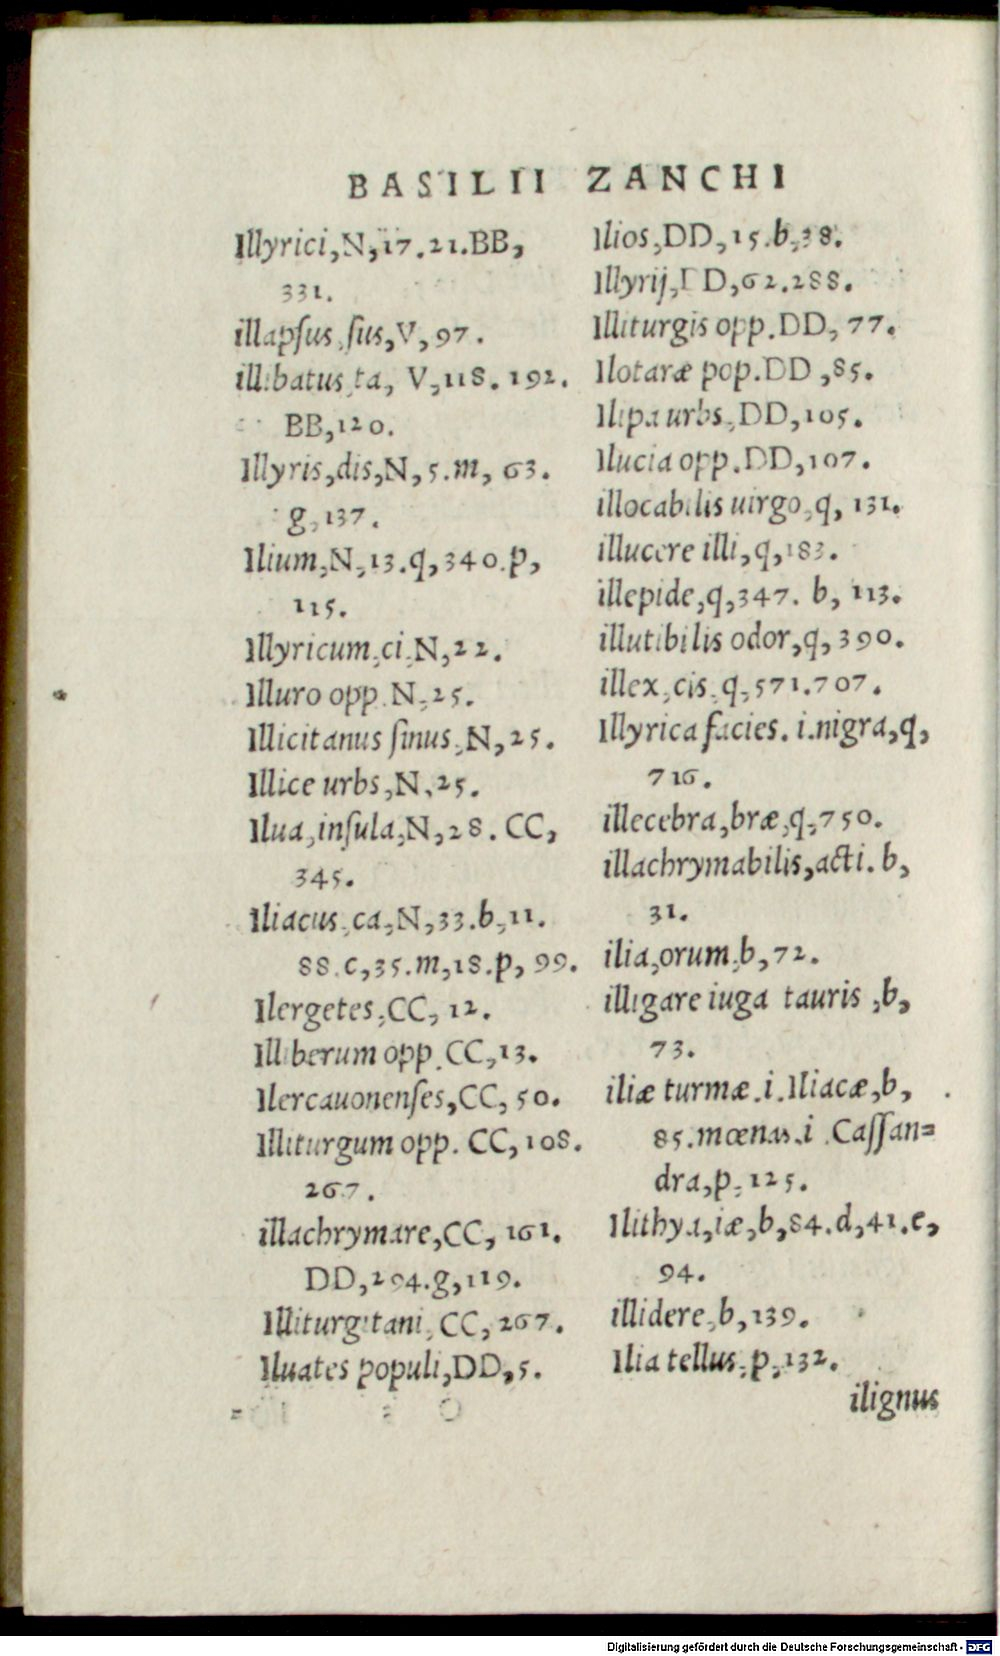 BASILII ZANCHI
Illyrici,N,17.21.BB,
331.
illapſus,ſus,V,97.
illibatus,ta, V,118. 192.
BB,120.
Illyris,dis,N,5.m, 63.
g,137.
Ilium,N,13.q,340.p,
115.
Illyricum,ci,N,22.
Illuro opp.N,25.
Illicitanus ſinus,N,25.
Illice urbs,N,25.
Ilua,inſula,N,28. CC,
345.
Iliacus,ca,N,33.b,11.
88.c,35.m,18.p, 99.
Ilergetes,CC, 12.
Illiberum opp.CC,13.
Ilercauonenſes,CC, 50.
Illiturgum opp. CC,108.
267.
illachrymare,CC, 161.
DD,294.g,119.
Illiturgitani,CC,267.
Iluates populi,DD,5.
Ilios,DD,15.b,38.
Illyrij,DD,62.288.
Illiturgis opp.DD, 77.
Ilotaræ pop.DD ,85.
Ilipa urbs,DD,105.
Ilucia opp.DD,107.
illocabilis uirgo,q, 131.
illucere illi,q,183.
illepide,q,347. b, 113.
illutibilis odor,q, 390.
illex,cis,q,571.707.
Illyrica facies. i.nigra,q,
716.
illecebra,bræ,q,750.
illachrymabilis,acti. b,
31.
ilia,orum,b,72.
illigare iuga tauris ,b,
73.
iliæ turmæ.i.Iliacæ,b,
85.mœnas.i .Caſſan=
dra,p,125.
Ilithya,iæ,b,84.d,41.e,
94.
illidere,b,139.
Ilia tellus,p,132.
ilignus
Digitalisierung gefördert durch die Deutsche Forschungsgemeinschaft - DFG